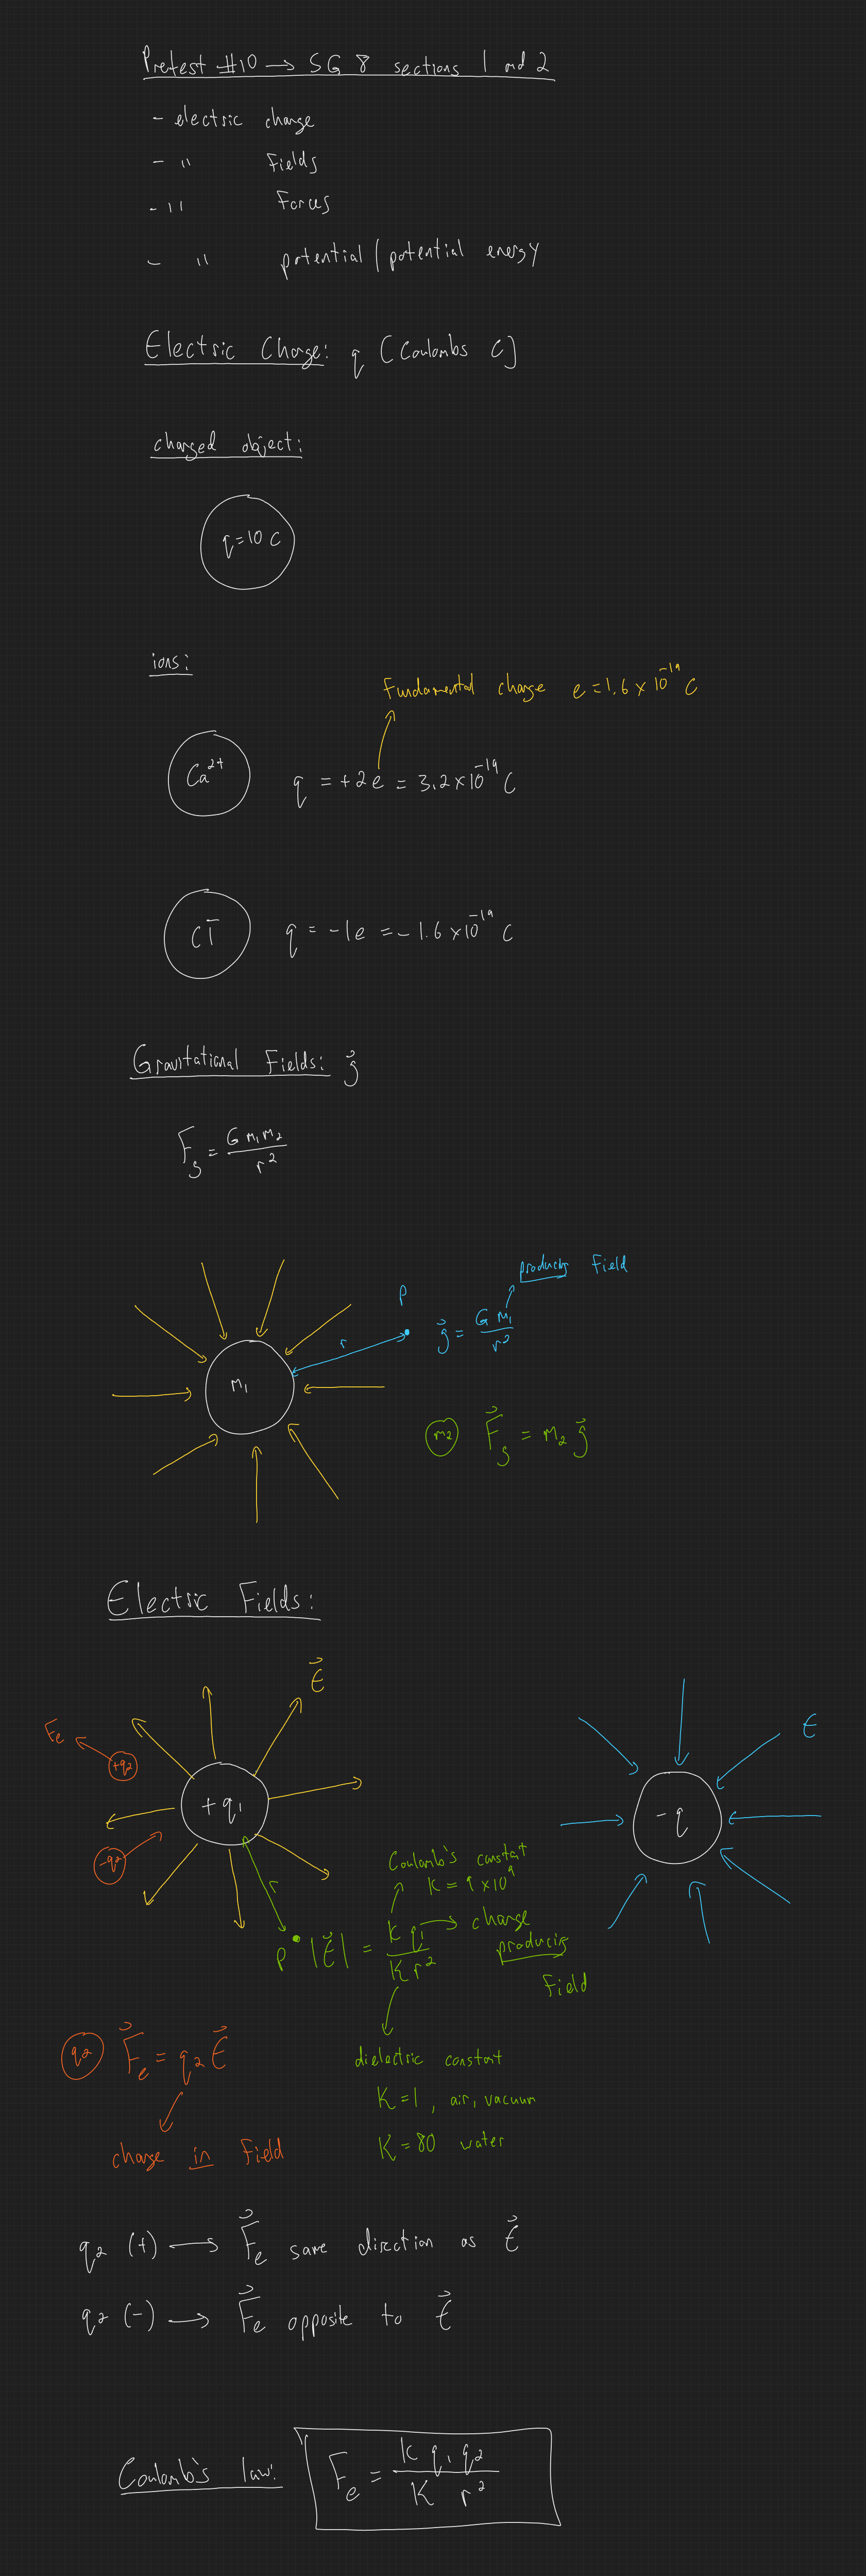 Pretest #10 → SG 8 sections 1 and 2
- electric charge
- " Fields
- " Forces
- " potential / potential energy
Electric Charge: q (Coulombs C)
charged object:
q = 10 C
ions:
Fundamental charge e = 1.6 × 10⁻¹⁹ C
Ca²⁺ q = +2e = 3.2 × 10⁻¹⁹ C
Cl⁻ q = -1e = -1.6 × 10⁻¹⁹ C
Gravitational Fields: g⃗
Fg = G m₁m₂ / r²
producing Field
P
r
g⃗ = G m₁ / r²
m₁
m₂ F⃗g = m₂ g⃗
Electric Fields:
E⃗
Fe
+q₂
E
+q₁
-q
-q₂
Coulomb's constant
K = 9 × 10⁹
r
P |E⃗| = K q₁ / K r² → charge
producing
Field
q₂ F⃗e = q₂ E⃗
dielectric constant
K = 1, air, vacuum
K = 80 water
charge in Field
q₂ (+) → F⃗e same direction as E⃗
q₂ (-) → F⃗e opposite to E⃗
Coulomb's law: Fe = K q₁ q₂ / K r²